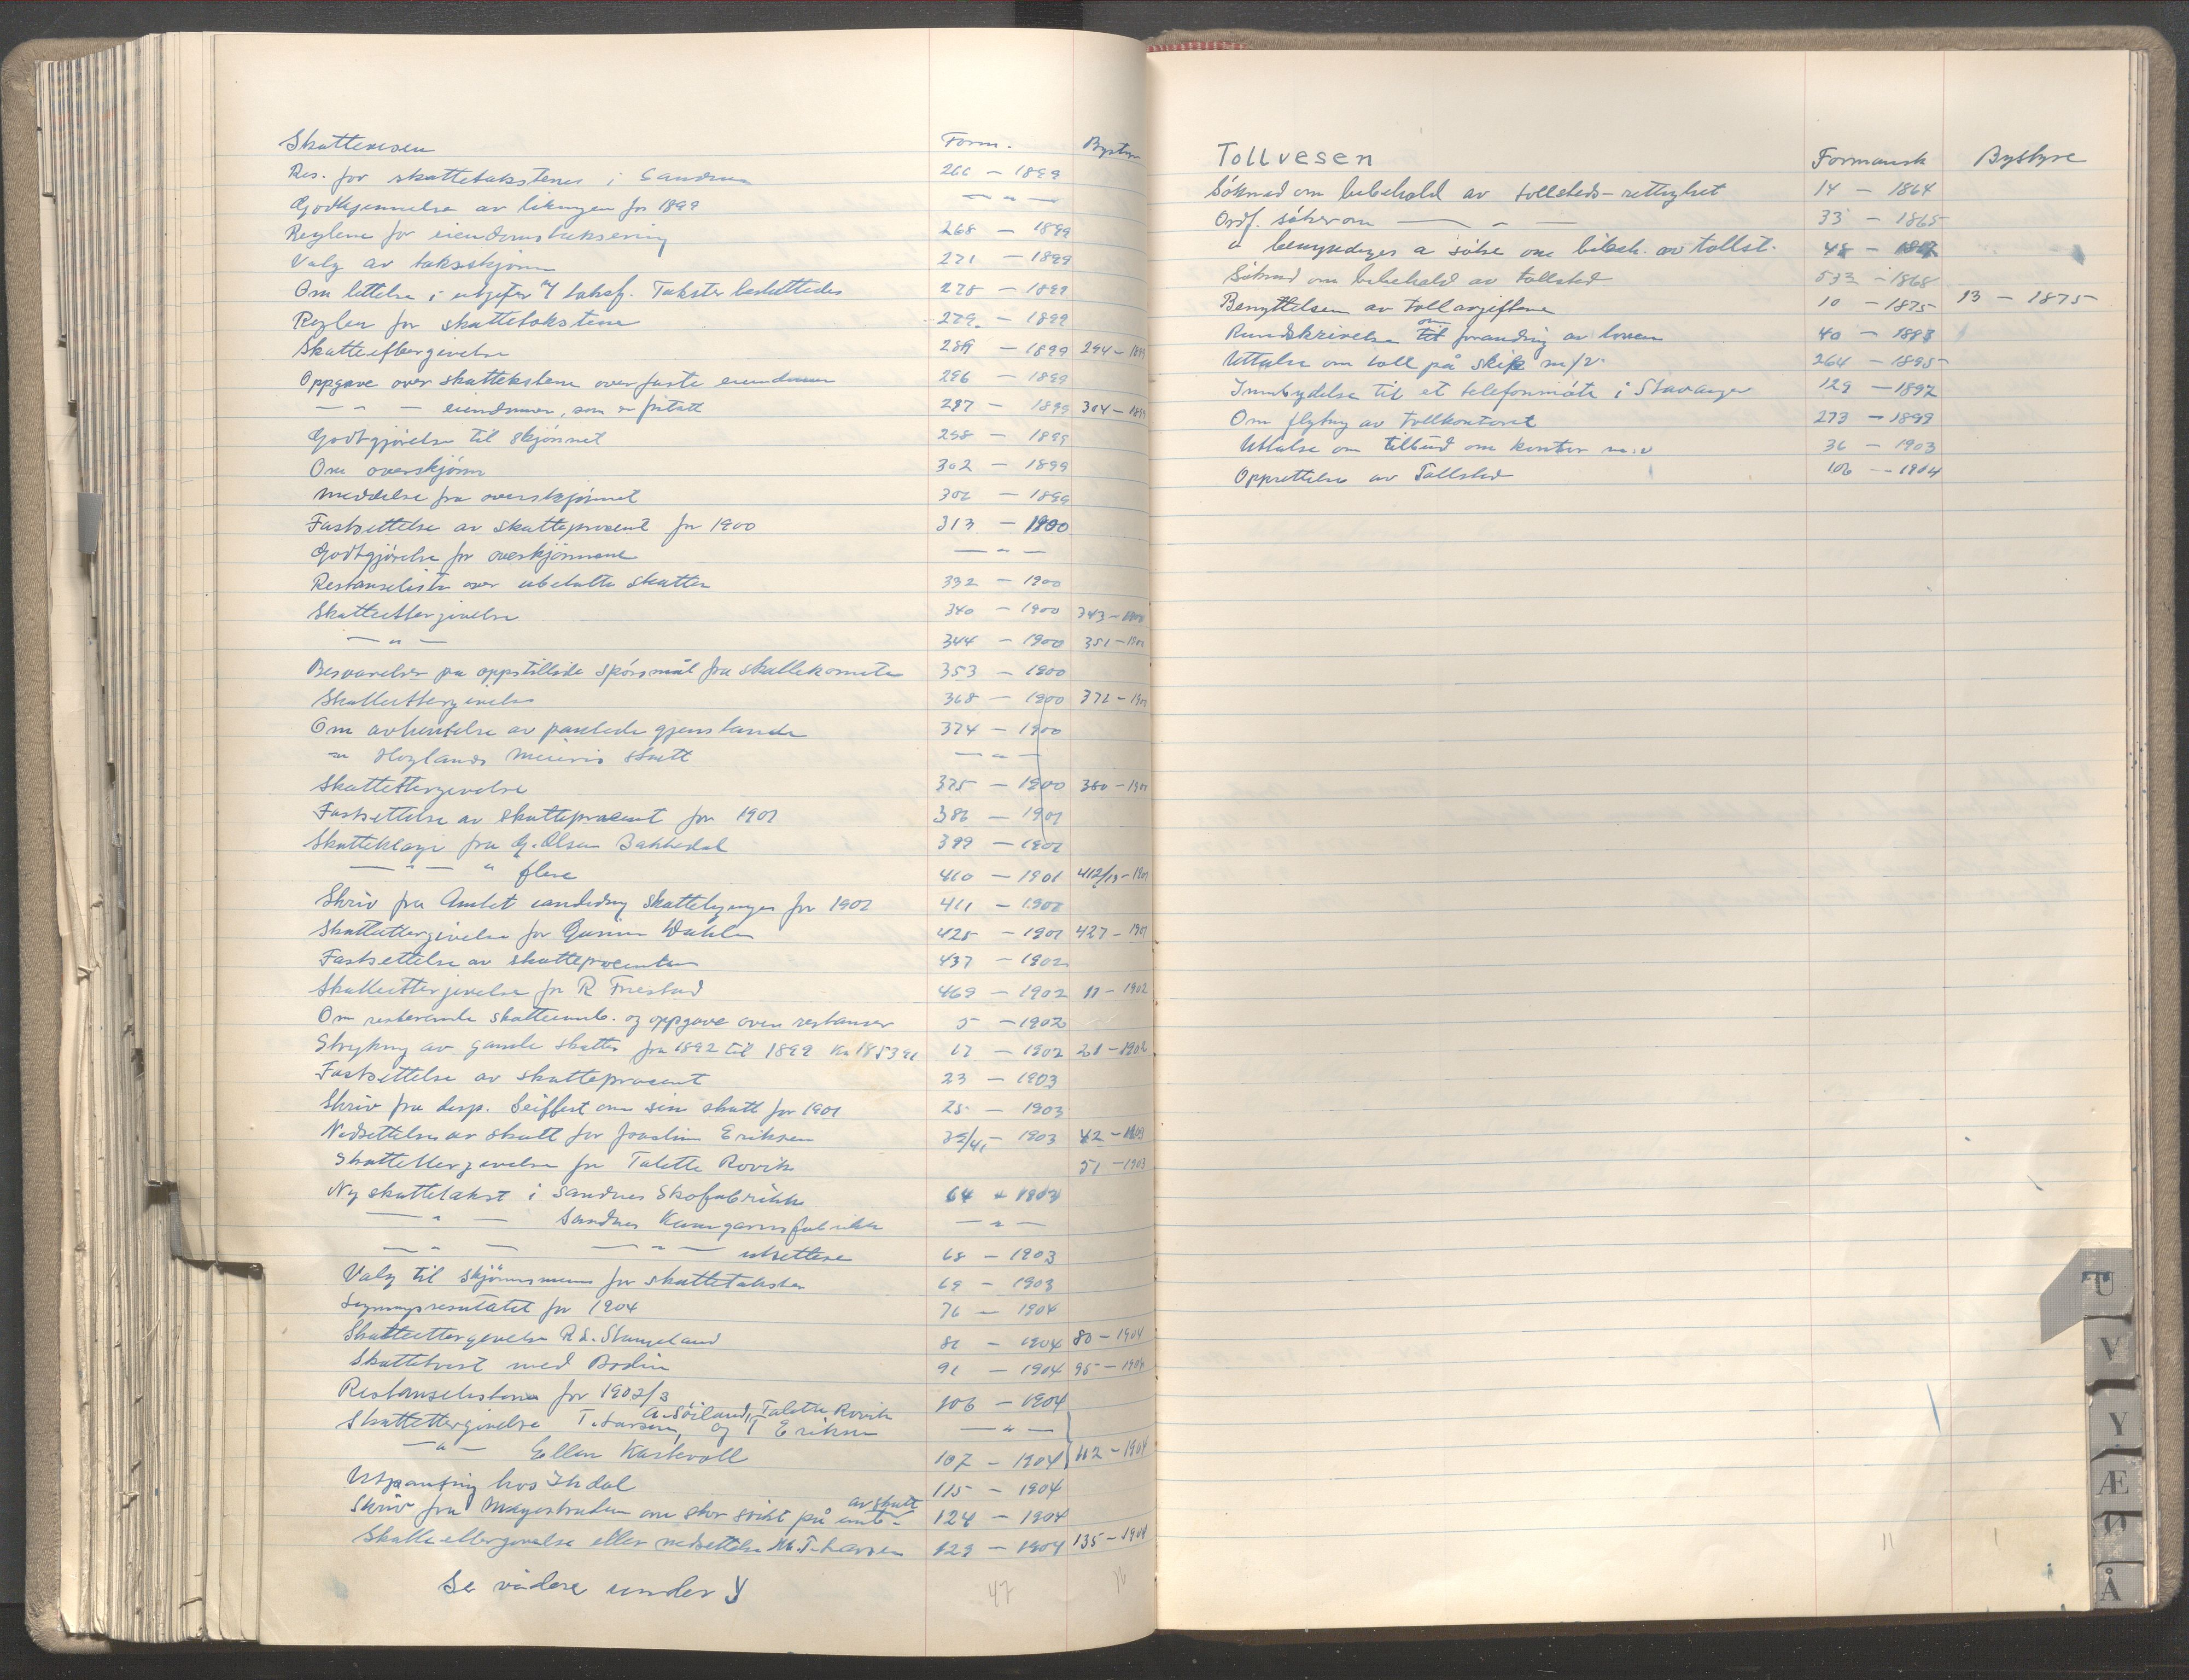 Skattevesen Form. Bystyre
Res. for skattetakstene i Sandnes 266 — 1899
Godkjennelse av likningen for 1899 — " —
Reglene for eiendomstaksering 268 — 1899
Valg av takstskjønn 271 — 1899
Om lettelse i utgifter v/ taksf. Takster besluttedes 278 — 1899
Regler for skattetakstene 279 — 1899
Skatteeftergivelse 289 — 1899 294 — 1899
Oppgave over skattetakstene over faste eiendommer 296 — 1899
— " — eiendommer, som er fritatt 297 — 1899 304 — 1899
Godtgjörelse til skjönnet 298 — 1899
Om overskjönn 302 — 1899
Meddelse fra overskjönnet 306 — 1899
Fastsettelse av skatteprosent for 1900 313 — 1900
Godtgjörelse for overskjönnene — " —
Restanseliste over ubetalte skatter 332 — 1900
Skatteettergivelse 340 — 1900 343 — 1900
— " — 344 — 1900 351 — 1900
Besvarelse på oppstillede spörsmål fra skattekomite 353 — 1900
Skatteettergivelse 368 — 1900 372 — 1900
Om avhentelse av pantede gjenstande 374 — 1900
" Höylands Meieris skatt — " —
Skattettergivelse 375 — 1900 380 — 1900
Fastsettelse av skatteprosent for 1901 386 — 1901
Skatteklage fra G. Olsen Bakkedal 399 — 1901
— " — " flere 410 — 1901 412/13 — 1901
Skriv fra Amtet Skattelignigen for 1901 411 — 1901
Skatteettergivelse for Gunnar Wahl 425 — 1901 427 — 1901
Fastsettelse av skatteprosenten 437 — 1902
Skatteettergivelse for R Frestad 469 — 1902 11 — 1902
Om resterende skatteinnb. og oppgave over restanser 5 — 1902
Strykning av gamle skatter fra 1892 til 1899 17 — 1902 21 — 1902
Fastsettelse av skatteprosent 23 — 1903
Skriv fra disp. Seiffert om sin skatt for 1901 25 — 1903
Nedsettelse av skatt for Joachim Eriksen 39/41 — 1903 42 — 1903
Skattettergivelse for Talette Rovik 51 — 1903
Ny skattetakst i Sandnes Skofabrikk 64 — 1903
— " — Sandnes Kamgarnsfabrikk — " —
— " — — " — utsettese 68 — 1903
Valg til skjönnsmenn for skattetakster 69 — 1903
Ligningsresultatet for 1904 76 — 1904
Skatteettergivelse R S. Stangeland 81 — 1904 80 — 1904
Skattetvist med Bodin 91 — 1904 95 — 1904
Restanselistene for 1902/3 106 — 1904
A. Söiland, Talette Rovik
Skattettergivelse T. Larsen, og T Eriksen — " —
— " — Ellen Kastevoll 107 — 1904 112 — 1904
Utpanting hos Ihdal 115 — 1904
av skatt
Skriv fra Magistraten om stor svikt på innb. 124 — 1904
Skatteettergivelse eller nedsettelse M. T. Larsen 129 — 1904 135 — 1904
Se videre under Y
47 16
Tollvesen Formansk Bystyre
Söknad om bibehold av tollsteds-rettighet 14 — 1864
Ordf. söker om — " — 33 — 1865
" bemyndiges a söke om bibeh. av tollst. 48 — 1867
Söknad om bibehold av tollsted 533 — 1868
Benyttelsen av tollavgiftene 10 — 1875 13 — 1875
om
Rundskrivelse til forandring av loven 40 — 1883
Uttalse om toll på skip m/v. 264 — 1895
Innbydelse til et telefonmöte i Stavanger 129 — 1897
Om flytng av tollkontoret 273 — 1899
Uttalse om tilbud om kontor m.v 36 — 1903
Opprettelse av Tollsted 106 — 1904
11 1
U
V
Y
Æ
Ø
Å